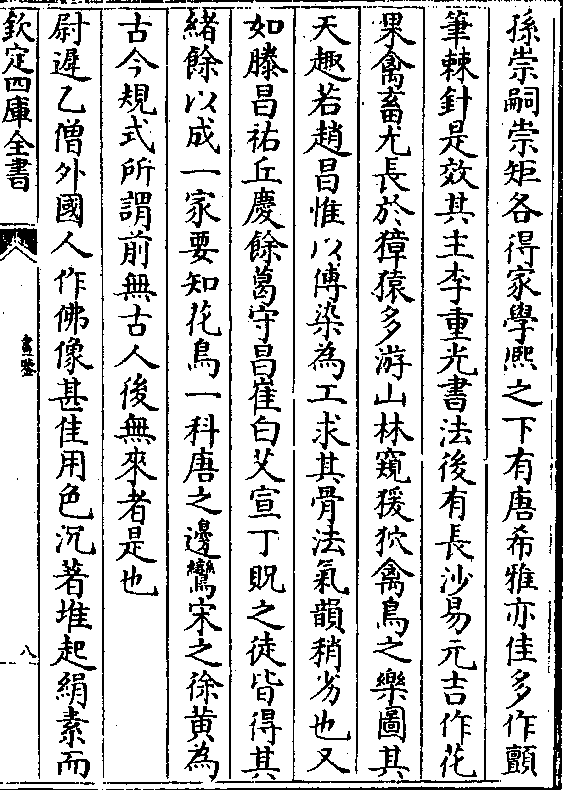 孫崇嗣崇矩各得家學熈之下有唐希雅亦佳多作顫
筆棘針是效其主李重光書法後有長沙易元吉作花
果禽畜尤長於獐猿多游山林窺猨狖禽鳥之樂圖其
天趣若趙昌惟以傅染為工求其骨法氣韻稍劣也又
如滕昌祐丘慶餘葛守昌崔白艾宣丁貺之徒皆得其
緒餘以成一家要知花鳥一科唐之邊鸞宋之徐黄為
古今規式所謂前無古人後無來者是也
尉遲乙僧外國人作佛像甚佳用色沉著堆起絹素而
欽定四庫全書
畫鑒
八